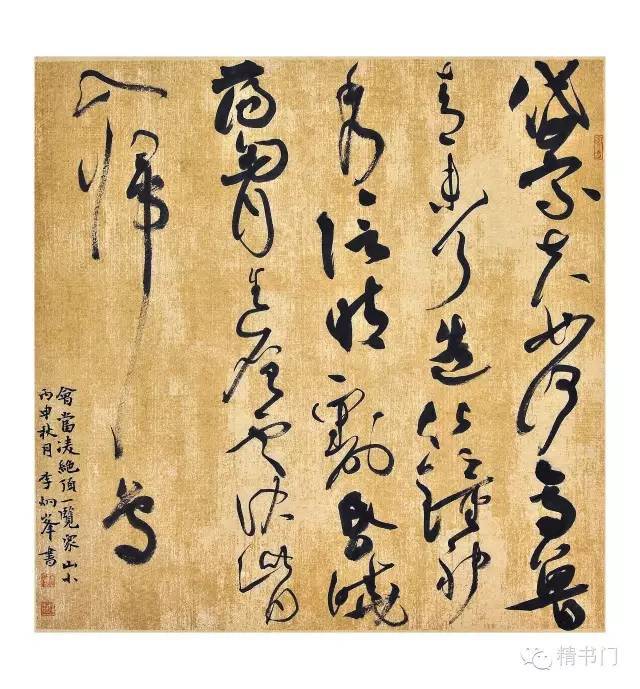 岱宗夫如何齊魯
青未了造化鍾神
秀陰陽割昏曉
蕩胸生層雲決眥
入歸鳥
會當凌絕頂一覽眾山小
丙申秋月李炯峯書
精书门